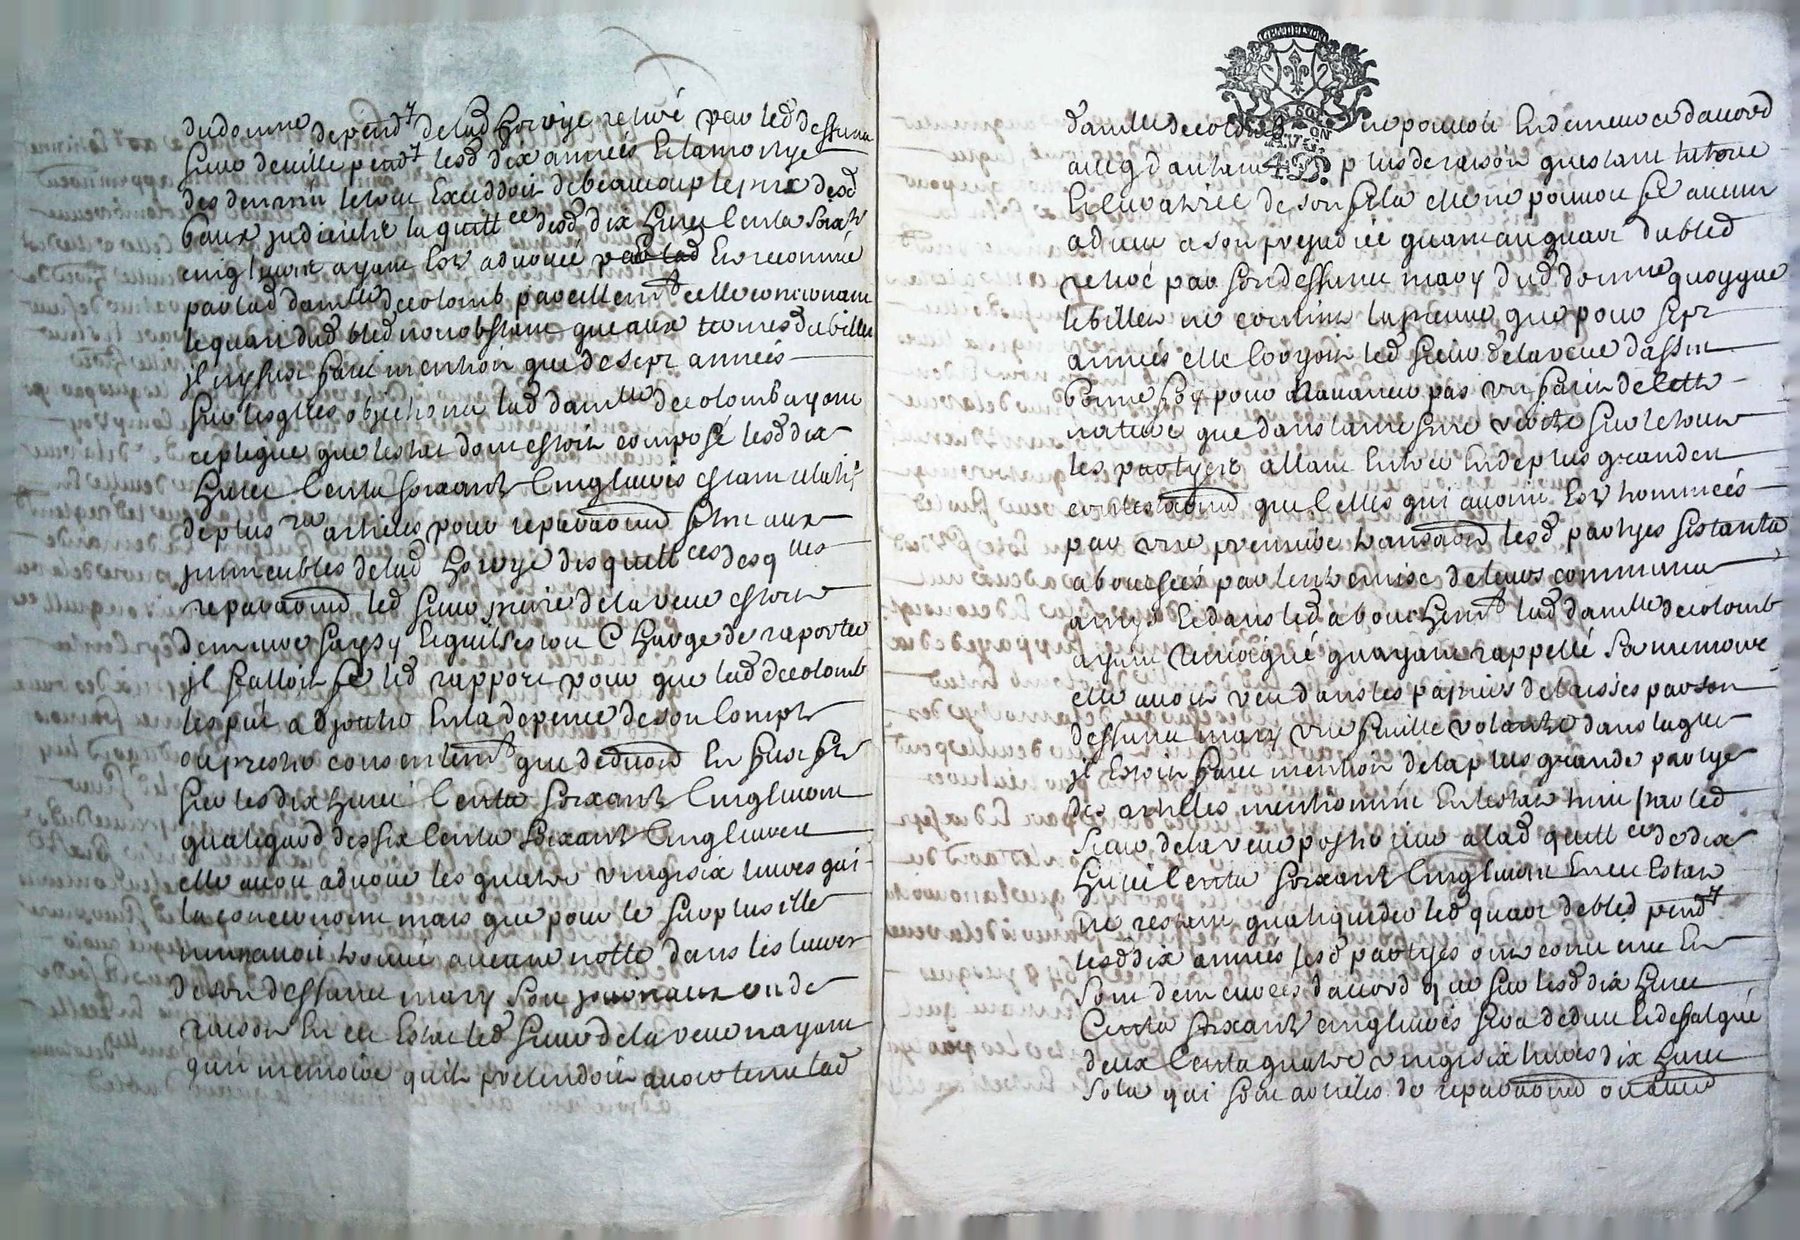 du domne depend^t de lad. borryé retiré par led. deffunt
sieur deuille pend^t lesd. dix années Et la moitye
des denrées le tout Exceddoit de beaucoup le prix desd.
baux judiciels la quitt^ce desd. dix huict Cents soix^te
cinq liures ayant Esté aduoüé par lad. Et reconnüe
par lad. dam^lle decolomb pareillem^t elle
le quart dud. bled nonobstant que aux termes du billet
il ny fust faict mention que de sept années
sur lesq^lles objections lad. dam^lle decolomb ayant
replicqué que dont estoit composé lesd. dix
huict Cents soixante Cinq liures estant
de plus^rs articles pour reparaõns faites aux
immeubles de lad. borrye desquitt^ces desq^lles
reparaõns led. sieur de la veue estoit
demeuré saysy Et qu'il estoit Chargé de raporter
il falloit fe led. rapport pour que lad. decolomb
les put adjouter En la depence de son Compte
ou prester consentem^t que deduõn En fust fte
sur les dix huict Cents soixante Cinq liures
qua legard des six Cents soixante Cinq liures
elle auoit aduoüé les quatre vingt six liures qui
la concernoint mais que pour le surplus elle
nen auoit trouué aucune notte dans les liures
de son deffunct mary son journaux ou de
raison En cet Estat led. sieur de la veue nayant
qun memoire quil pretendoit auoir tenu lad.
dam^lle decolomb ne pouuoit En demeurer d'accord
auecq dautant plus de raison questant tutrice
Et curatrice de son fils elle ne pouuoit fe aucun
adueu a son prejudice quant au quart du bled
retiré par son deffunct mary dud. domne quoyque
le billet ne contint la preuue que pour sept
années elle croyoit led. sieur de la veue dassez
bonne foy pour nauancer pas vn faict de cette
nature que dans la mesure verité sur le tout
les partyes allant Entrer En de plus grandes
contestaõns que Celles qui auoint Esté
par vne premiere transaõn lesd. partyes sestants
abouchées par lentremise de leurs communs
amys Et dans led. abouchem^t lad. dam^lle decolomb
ayant temoigné quayant rappellé sa memoire
elle auoit veu dans les papiers delaissés par son
deffunct mary vne feuille volante dans laq^lle
il Estoit faict mention de la plus grande partye
des articles mentionnés En lestat tenu par led.
sieur de la veue posterieur a lad. quitt^ce de dix
huict Cents soixante Cinq liures En cet Estat
ne restant qua liquider led. quart de bled pend^t
lesd. dix années lesd. partyes ont conuenu Et
sont demeurées daccord que sur lesd. dix huict
Cents soixante cinq liures sera deduit Et defalqué
deux Cents quatre vingt six liures dix huict
sols qui sont articles de reparaõns ou